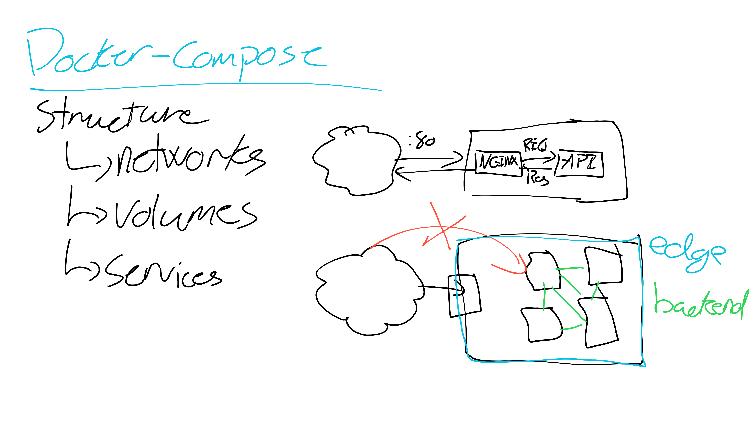 Docker-Compose
Structure
networks
volumes
services
:80
NGINX
REQ
Res
API
edge
backend